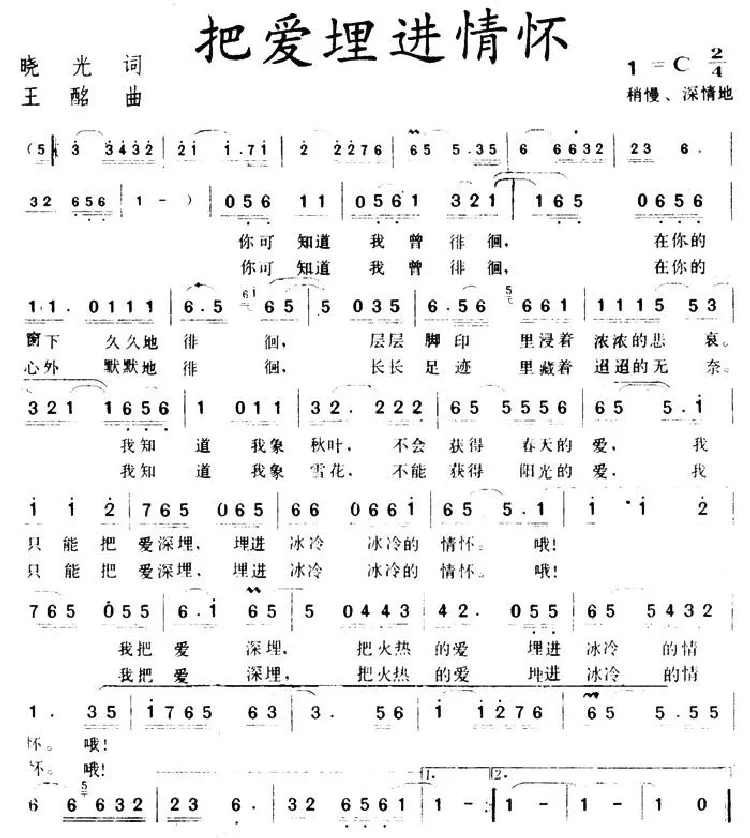 把爱埋进情怀
晓光 词
1=C 2/4
王酩 曲
稍慢、深情地
(5 3 3432 | 2i 1.7i | 2 2276 | 65 5.35 | 6 6632 | 23 6. |
32 656 | 1 - ) | 056 11 | 0561 321 | 165 0656 |
你可 知道 我曾徘徊, 在你的
你可 知道 我曾徘徊, 在你的
11. 0111 | 6.5 65 | 5 035 | 6.56 661 | 1115 53 |
窗下 久久地 徘 徊, 层层 脚印 里浸着 浓浓的悲 哀。
心外 默默地 徘 徊, 长长 足迹 里藏着 迢迢的无 奈。
321 1656 | 1 011 | 32. 222 | 65 5556 | 65 5.i |
我知 道 我象 秋叶, 不会 获得 春天的 爱, 我
我知 道 我象 雪花, 不能 获得 阳光的 爱, 我
i i 2 | 765 065 | 66 0661 | 65 5.1 | i i 2 |
只能把 爱深埋, 埋进 冰冷 冰冷的 情怀。 哦!
只能把 爱深埋, 埋进 冰冷 冰冷的 情怀。 哦!
765 055 | 6.i 65 | 5 0443 | 42. 055 | 65 5432 |
我把 爱 深埋, 把火热 的爱 埋进 冰冷 的情
我把 爱 深埋, 把火热 的爱 埋进 冰冷 的情
1. 35 | i765 63 | 3. 56 | i i276 | 65 5.5 |
怀。 哦!
怀。 哦!
1. 2.
6 6632 | 23 6. | 32 6561 | 1 - :| 1 - | 1 - | 1 0 |